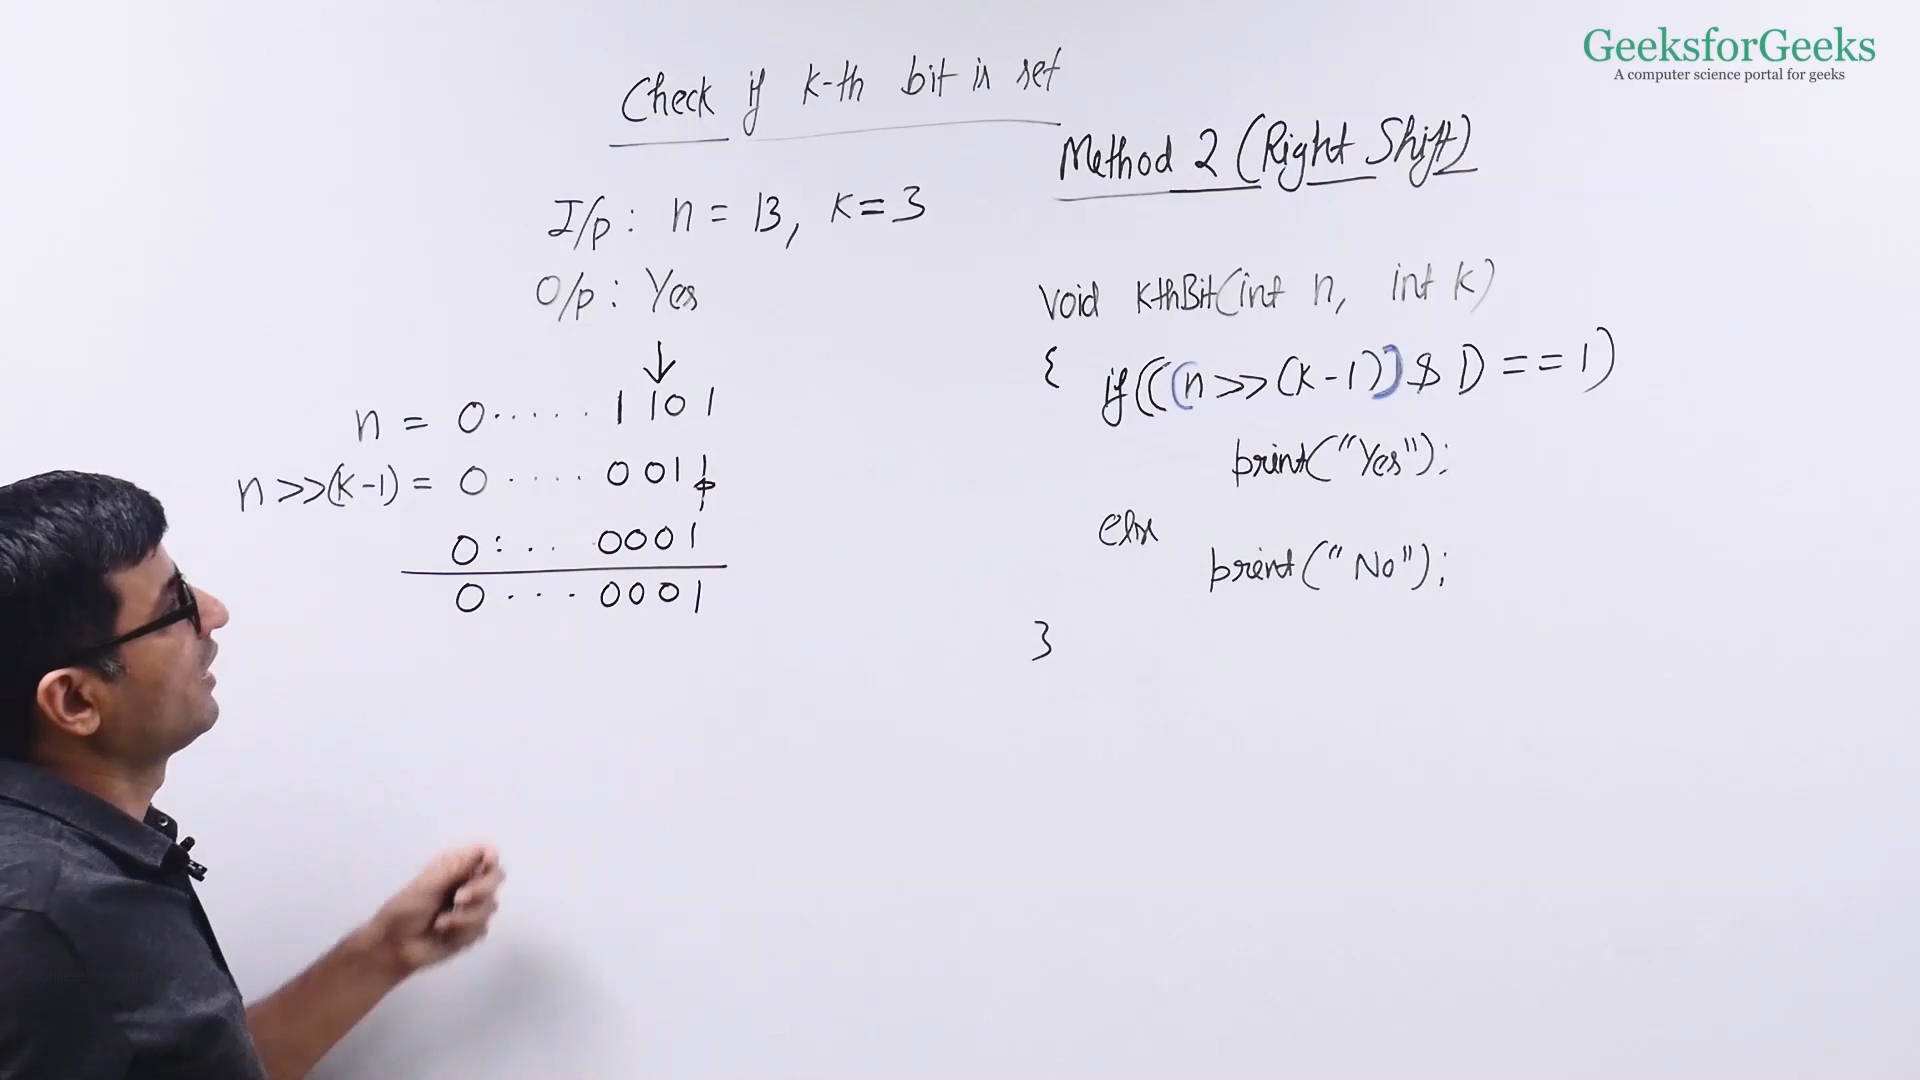 GeeksforGeeks
A computer science portal for geeks
Check if k-th bit is set
I/p : n = 13, k = 3
O/p : Yes
↓
n = 0 . . . . . 1 1 0 1
n >> (k-1) = 0 . . . . 0 0 1 1
0 : . . 0 0 0 1
0 . . . 0 0 0 1
Method 2 (Right Shift)
void kthBit(int n, int k)
{ if(((n >> (k-1)) & 1) == 1)
print("Yes");
else
print("No");
}